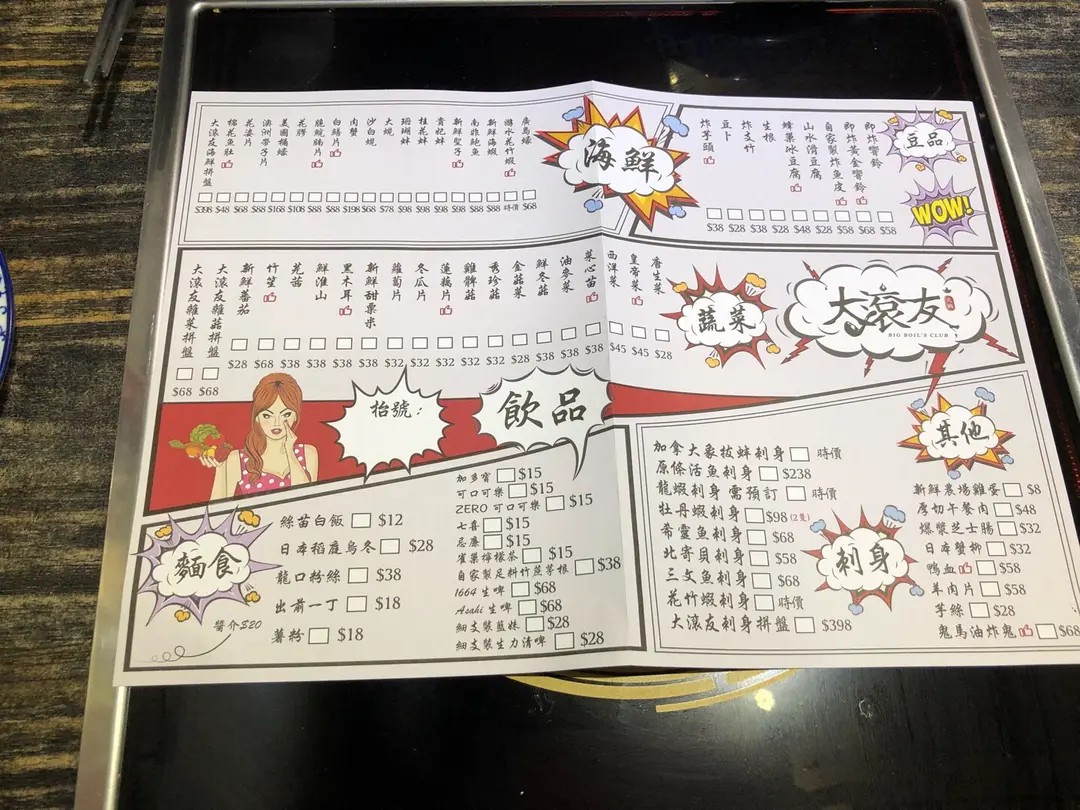 海鮮
廣島蠔 $68
游水花竹蝦 時價
新鮮海蝦 $88
南非鮑魚 $88
新鮮聖子 $98
貴妃蚌 $98
桂花蚌 $98
珊瑚蚌 $98
大蜆 $78
沙白蜆 $68
肉蟹 $198
白鱔片 $88
脆鯇腩片 $88
花膠 $108
美國桶蠔 $168
澳洲帶子片 $88
花姿片 $68
棉花魚肚 $48
大滾友海鮮拼盤 $398
豆品
WOW!
即炸響鈴 $58
即炸黃金響鈴 $68
自家製炸魚皮 $58
山水滑豆腐 $28
蜂巢冰豆腐 $48
生根 $28
炸支竹 $38
豆卜 $28
炸芋頭 $38
大滾友
BIG BOIL'S CLUB
蔬菜
唐生菜 $28
皇帝菜 $45
西洋菜 $45
菜心苗 $38
油麥菜 $38
鮮冬菇 $38
金菇菜 $28
秀珍菇 $32
雞髀菇 $32
蓮藕片 $32
冬瓜片 $32
蘿蔔片 $32
新鮮甜粟米 $38
黑木耳 $38
鮮淮山 $38
芫茜 $38
竹笙 $68
新鮮蕃茄 $28
大滾友雜菇拼盤 $68
大滾友雜菜拼盤 $68
抬號：
飲品
加多寶 $15
可口可樂 $15
ZERO 可口可樂 $15
七喜 $15
忌廉 $15
雀巢檸檬茶 $15
自家製足料竹蔗茅根 $38
1664 生啤 $68
Asahi 生啤 $68
細支裝藍妹 $28
細支裝生力清啤 $28
麵食
絲苗白飯 $12
日本稻庭烏冬 $28
龍口粉絲 $38
出前一丁 $18
薯粉 $18
醬介 $20
刺身
加拿大象拔蚌刺身 時價
原條活魚刺身 $238
龍蝦刺身 需預訂 時價
牡丹蝦刺身 $98 (2隻)
希靈魚刺身 $68
北寄貝刺身 $58
三文魚刺身 $68
花竹蝦刺身 時價
大滾友刺身拼盤 $398
其他
新鮮農場雞蛋 $8
厚切午餐肉 $48
爆漿芝士腸 $32
日本蟹柳 $32
鴨血 $58
羊肉片 $58
芋絲 $28
鬼馬油炸鬼 $68